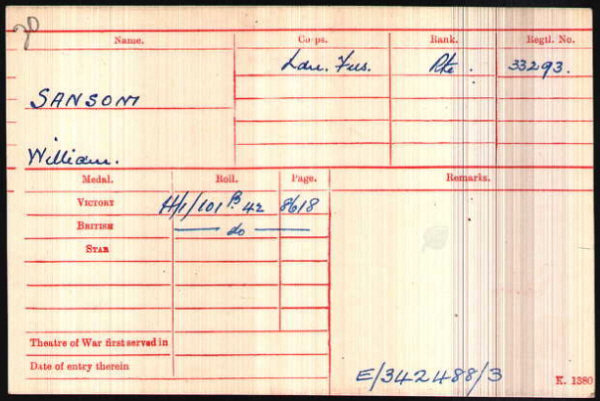 Name. Corps. Rank. Regtl. No.
Lan. Fus. Pte. 33293.
SANSOM
William.
Medal. Roll. Page. Remarks.
VICTORY H/1/101 B. 42 8618
BRITISH — do —
STAR
Theatre of War first served in
Date of entry therein
E/342488/3
K. 1380